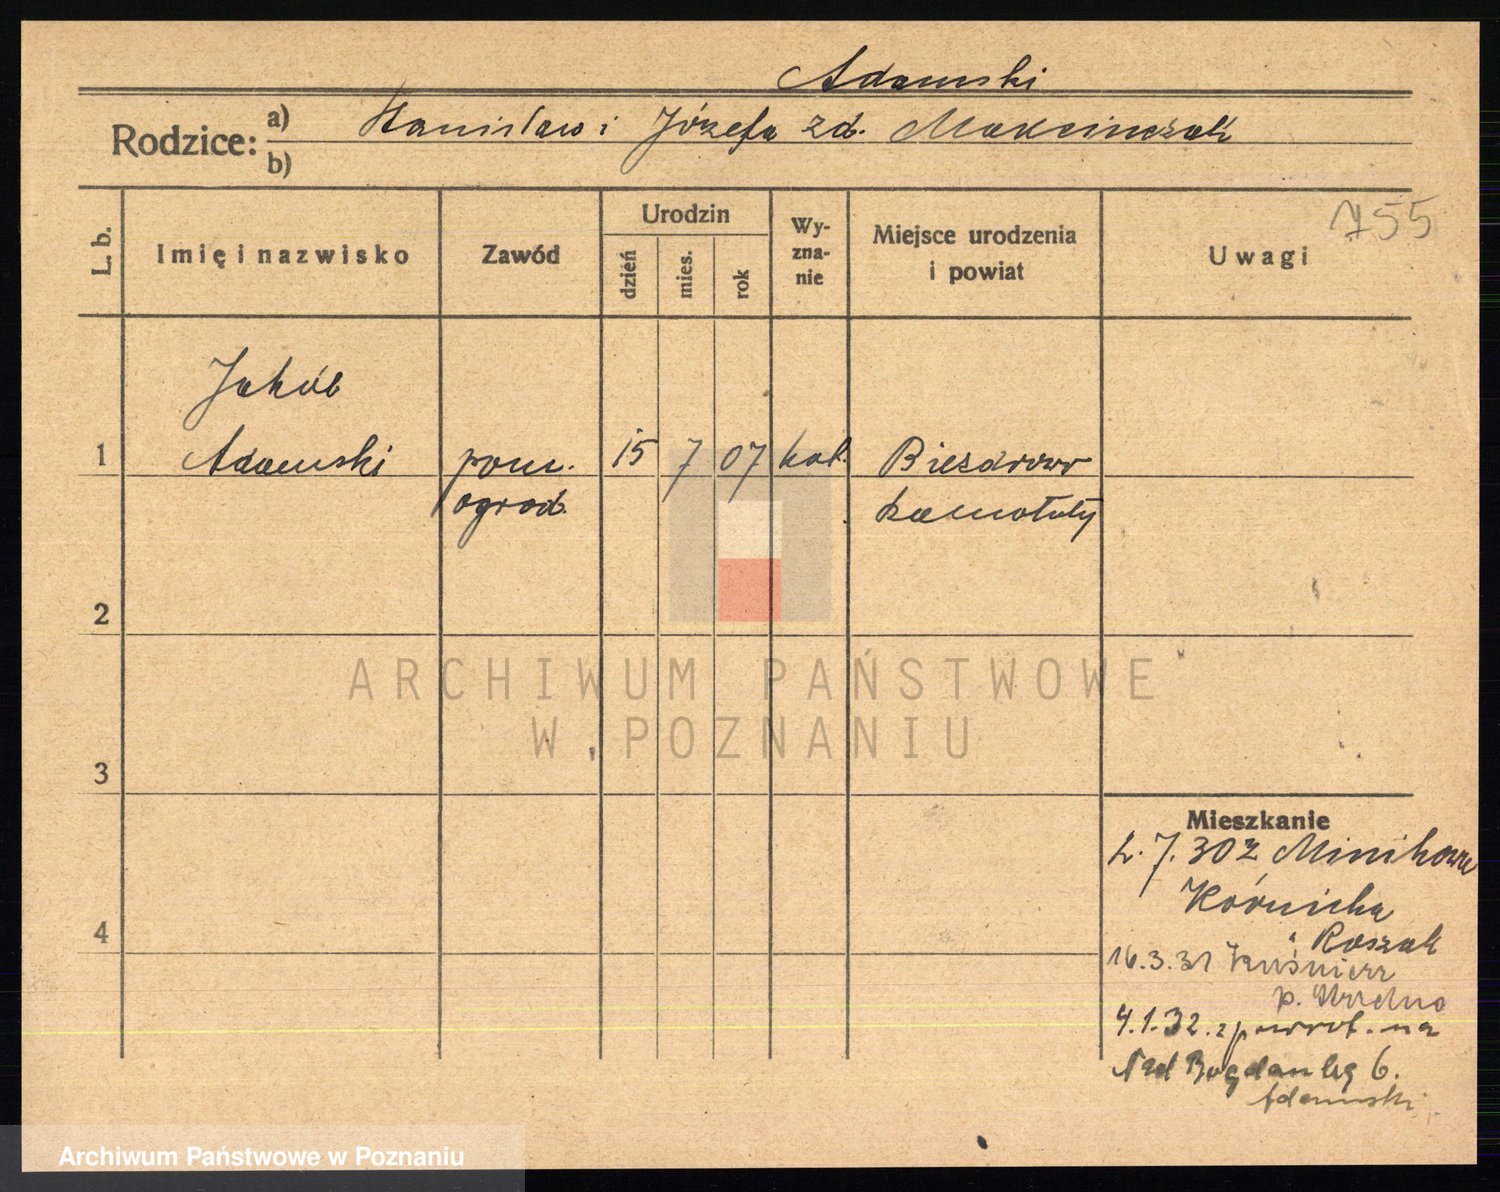 Adamski
Rodzice: a) Stanisław i Józefa zd. Marcinczak
b)
755
L. b.
Imię i nazwisko
Zawód
Urodzin
dzień
mies.
rok
Wy-
zna-
nie
Miejsce urodzenia
i powiat
Uwagi
Jakób
1 Adamski pom. 15 7 07 kat. Biezdrowo
ogrod. Szamotuły
2
ARCHIWUM PAŃSTWOWE
W POZNANIU
3
Mieszkanie
2. 7. 30 z Minikowa
Kórnicka
4
Roszak
16.3.31 Kuśnierz
p.
4.1.32. z powrot. na
Nad Bogdanką 6.
Adamski
Archiwum Państwowe w Poznaniu